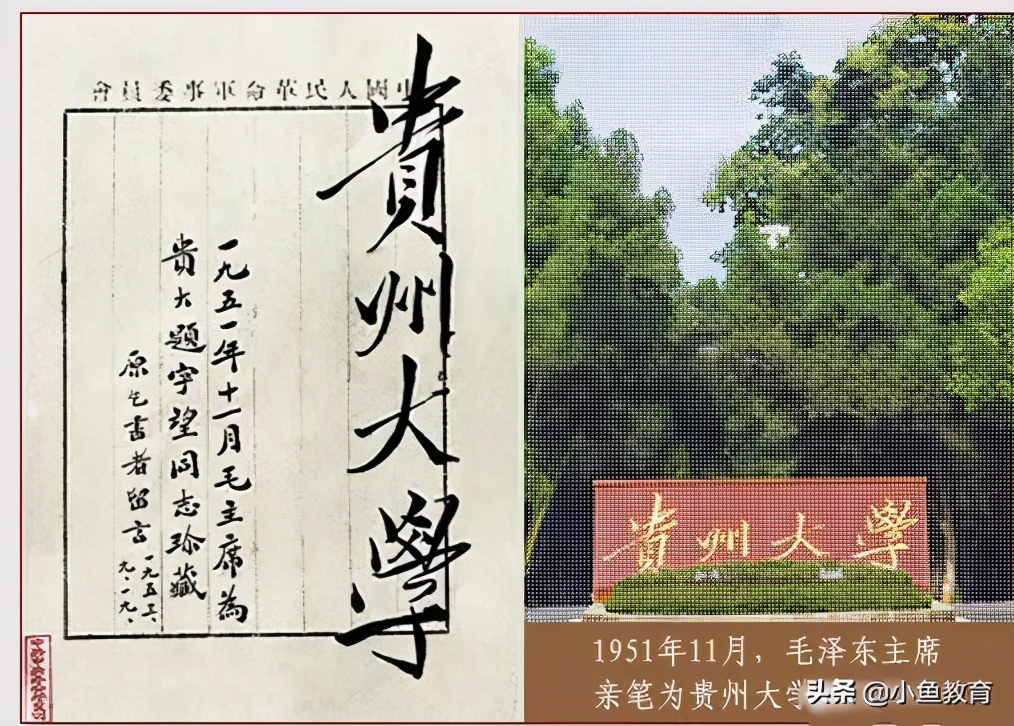 中國人民革命軍事委員會
貴州大學
一九五一年十一月毛主席為
貴大題字望同志珍藏
原乞書者留言
一九五三、
九、一九、
貴州大學
1951年11月，毛泽东主席
亲笔为贵州大学
头条 @小鱼教育